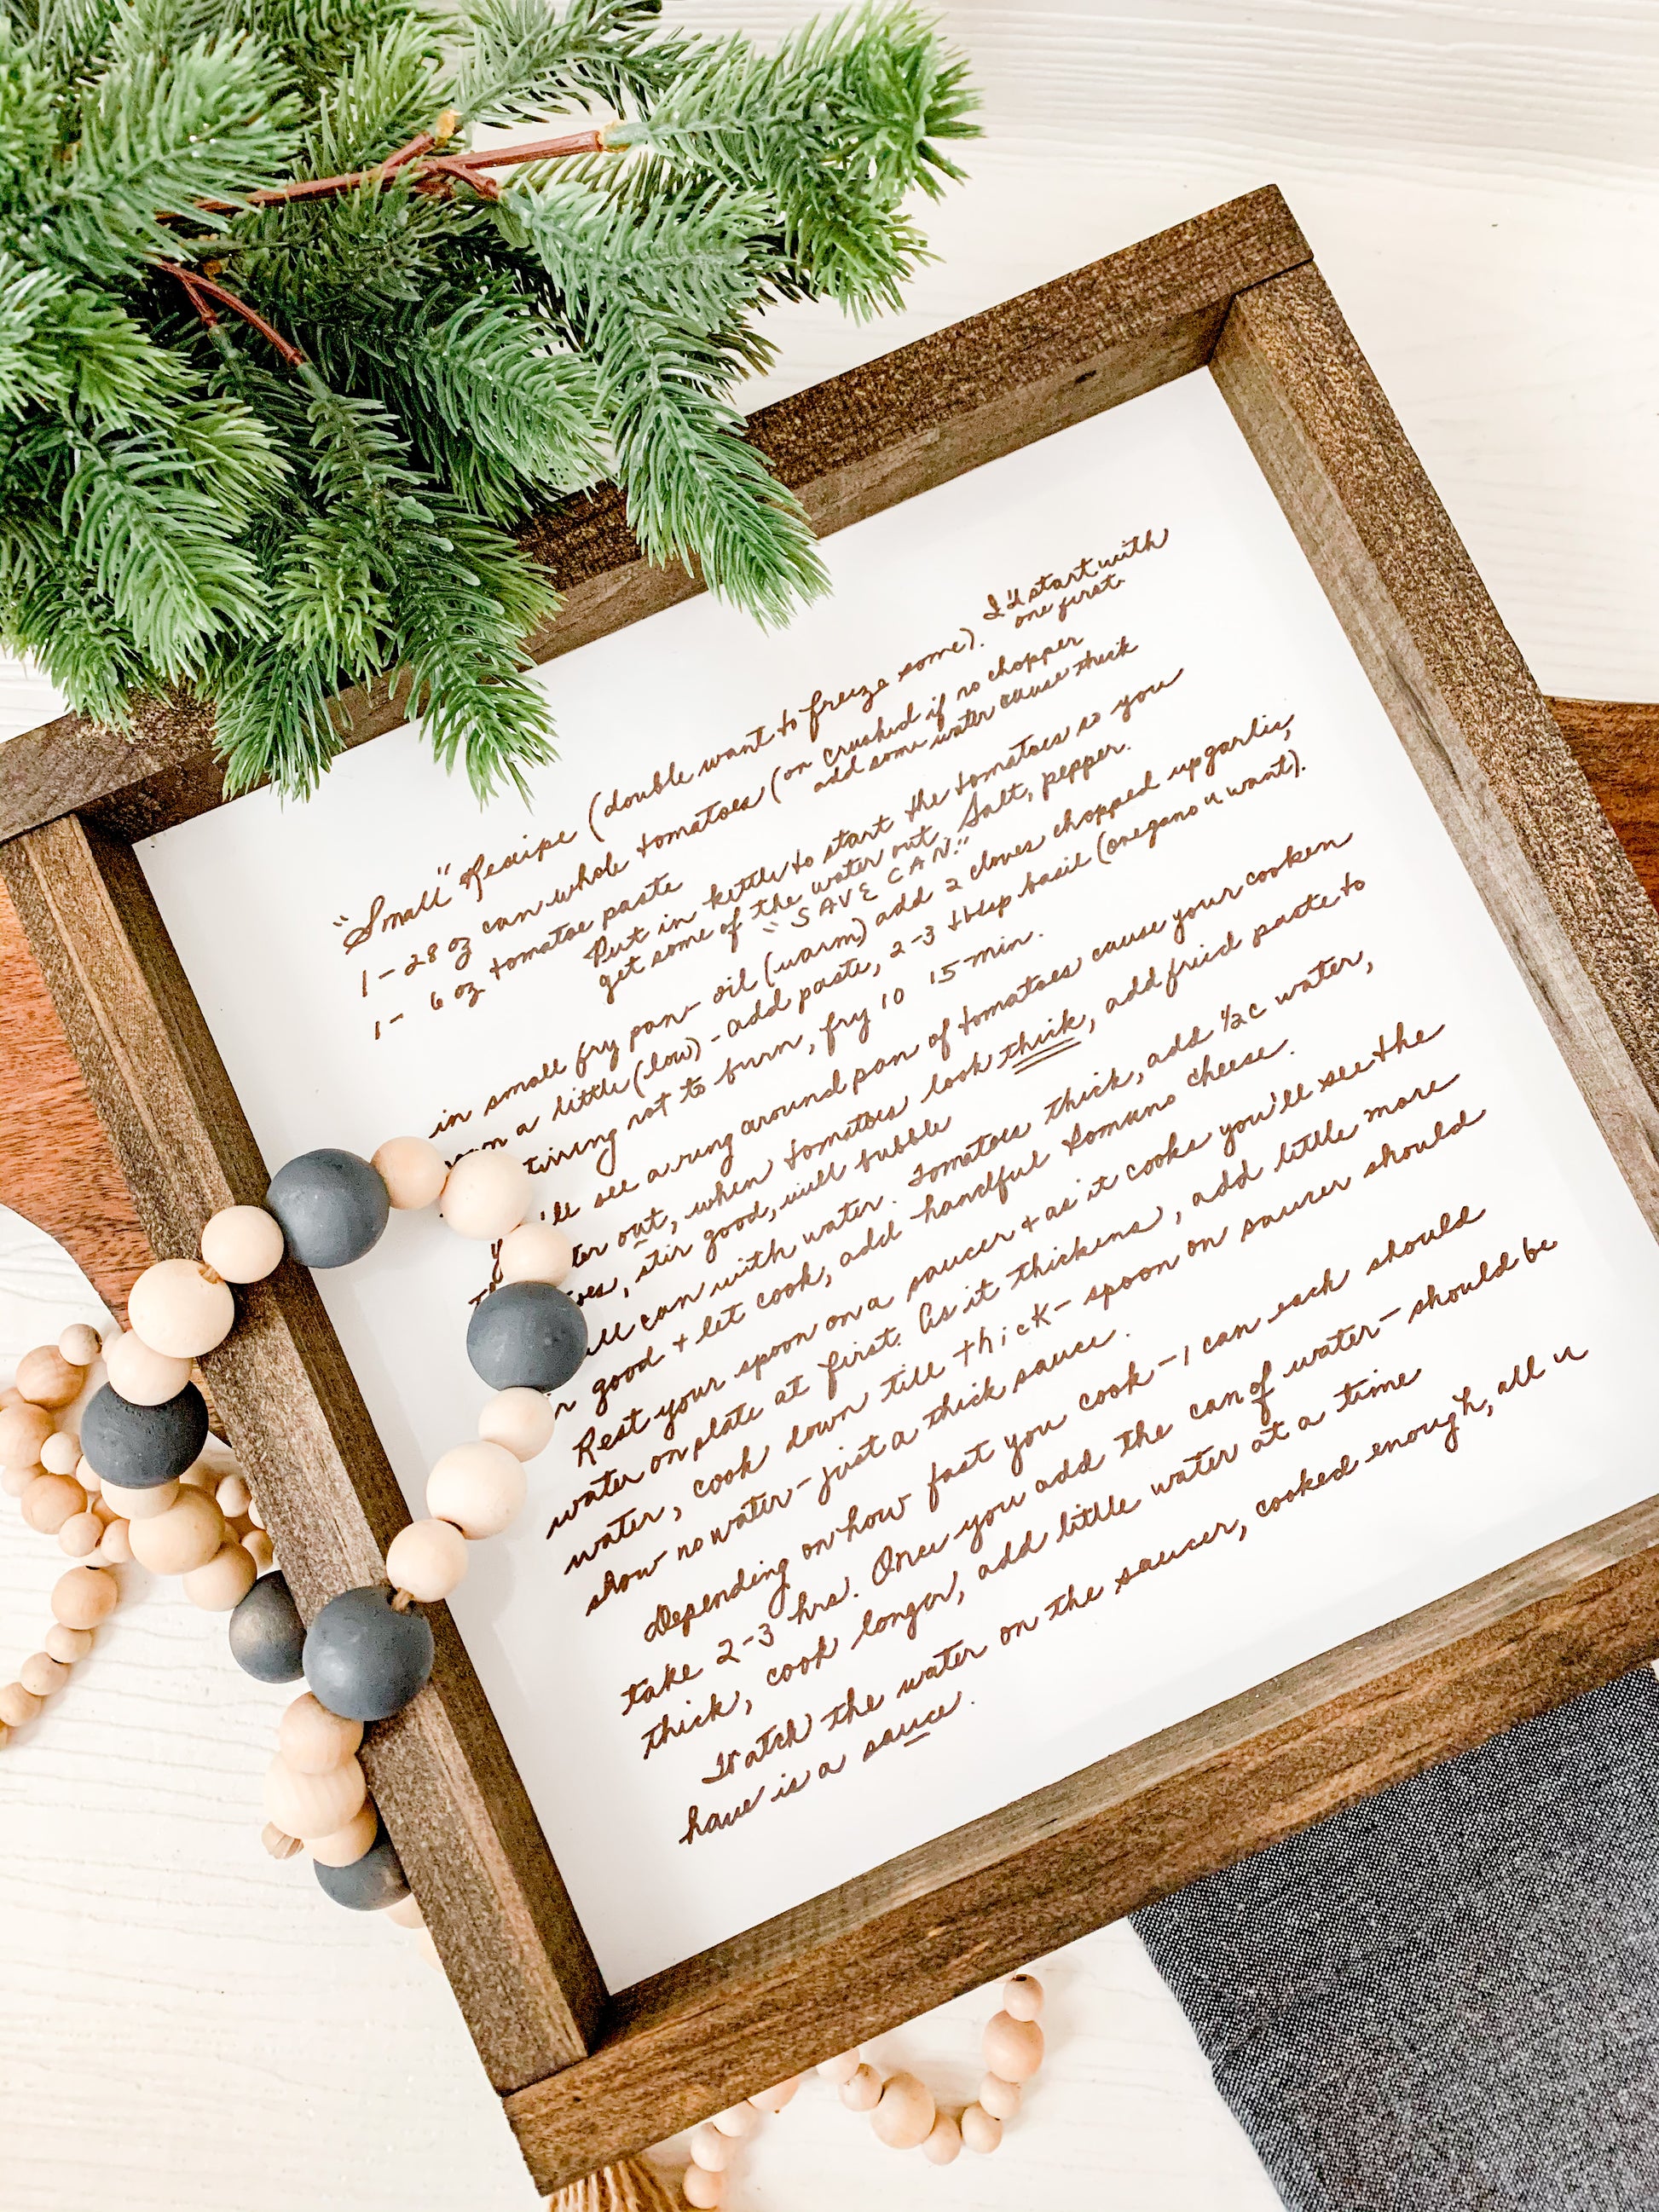 "Small" Recipe (double want to freeze some). I'd start with
one first.
1 - 28 oz can whole tomatoes (or crushed if no chopper
add some water cause thick
1 - 6 oz tomatoe paste
Put in kettle to start the tomatoes so you
get some of the water out. Salt, pepper.
"SAVE CAN."
in small fry pan - oil (warm) add 2 cloves chopped up garlic,
a little (low) - add paste, 2-3 tblsp basil (oregano u want).
not to burn, fry 10 15 min.
see a ring around pan of tomatoes cause your cooken
out, when tomatoes look thick, add fried paste to
stir good, will bubble
can with water. Tomatoes thick, add 1/2 c water,
good + let cook, add handful Romano cheese.
Rest your spoon on a saucer + as it cooks you'll see the
water on plate at first. As it thickens, add little more
water, cook down till thick - spoon on saucer should
show no water - just a thick sauce.
Depending on how fast you cook - 1 can each should
take 2-3 hrs. Once you add the can of water - should be
thick, cook longer, add little water at a time
Watch the water on the saucer, cooked enough, all u
have is a sauce.